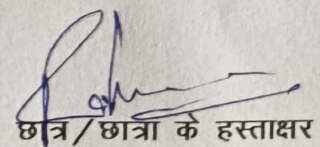 छात्र/छात्रा के हस्ताक्षर